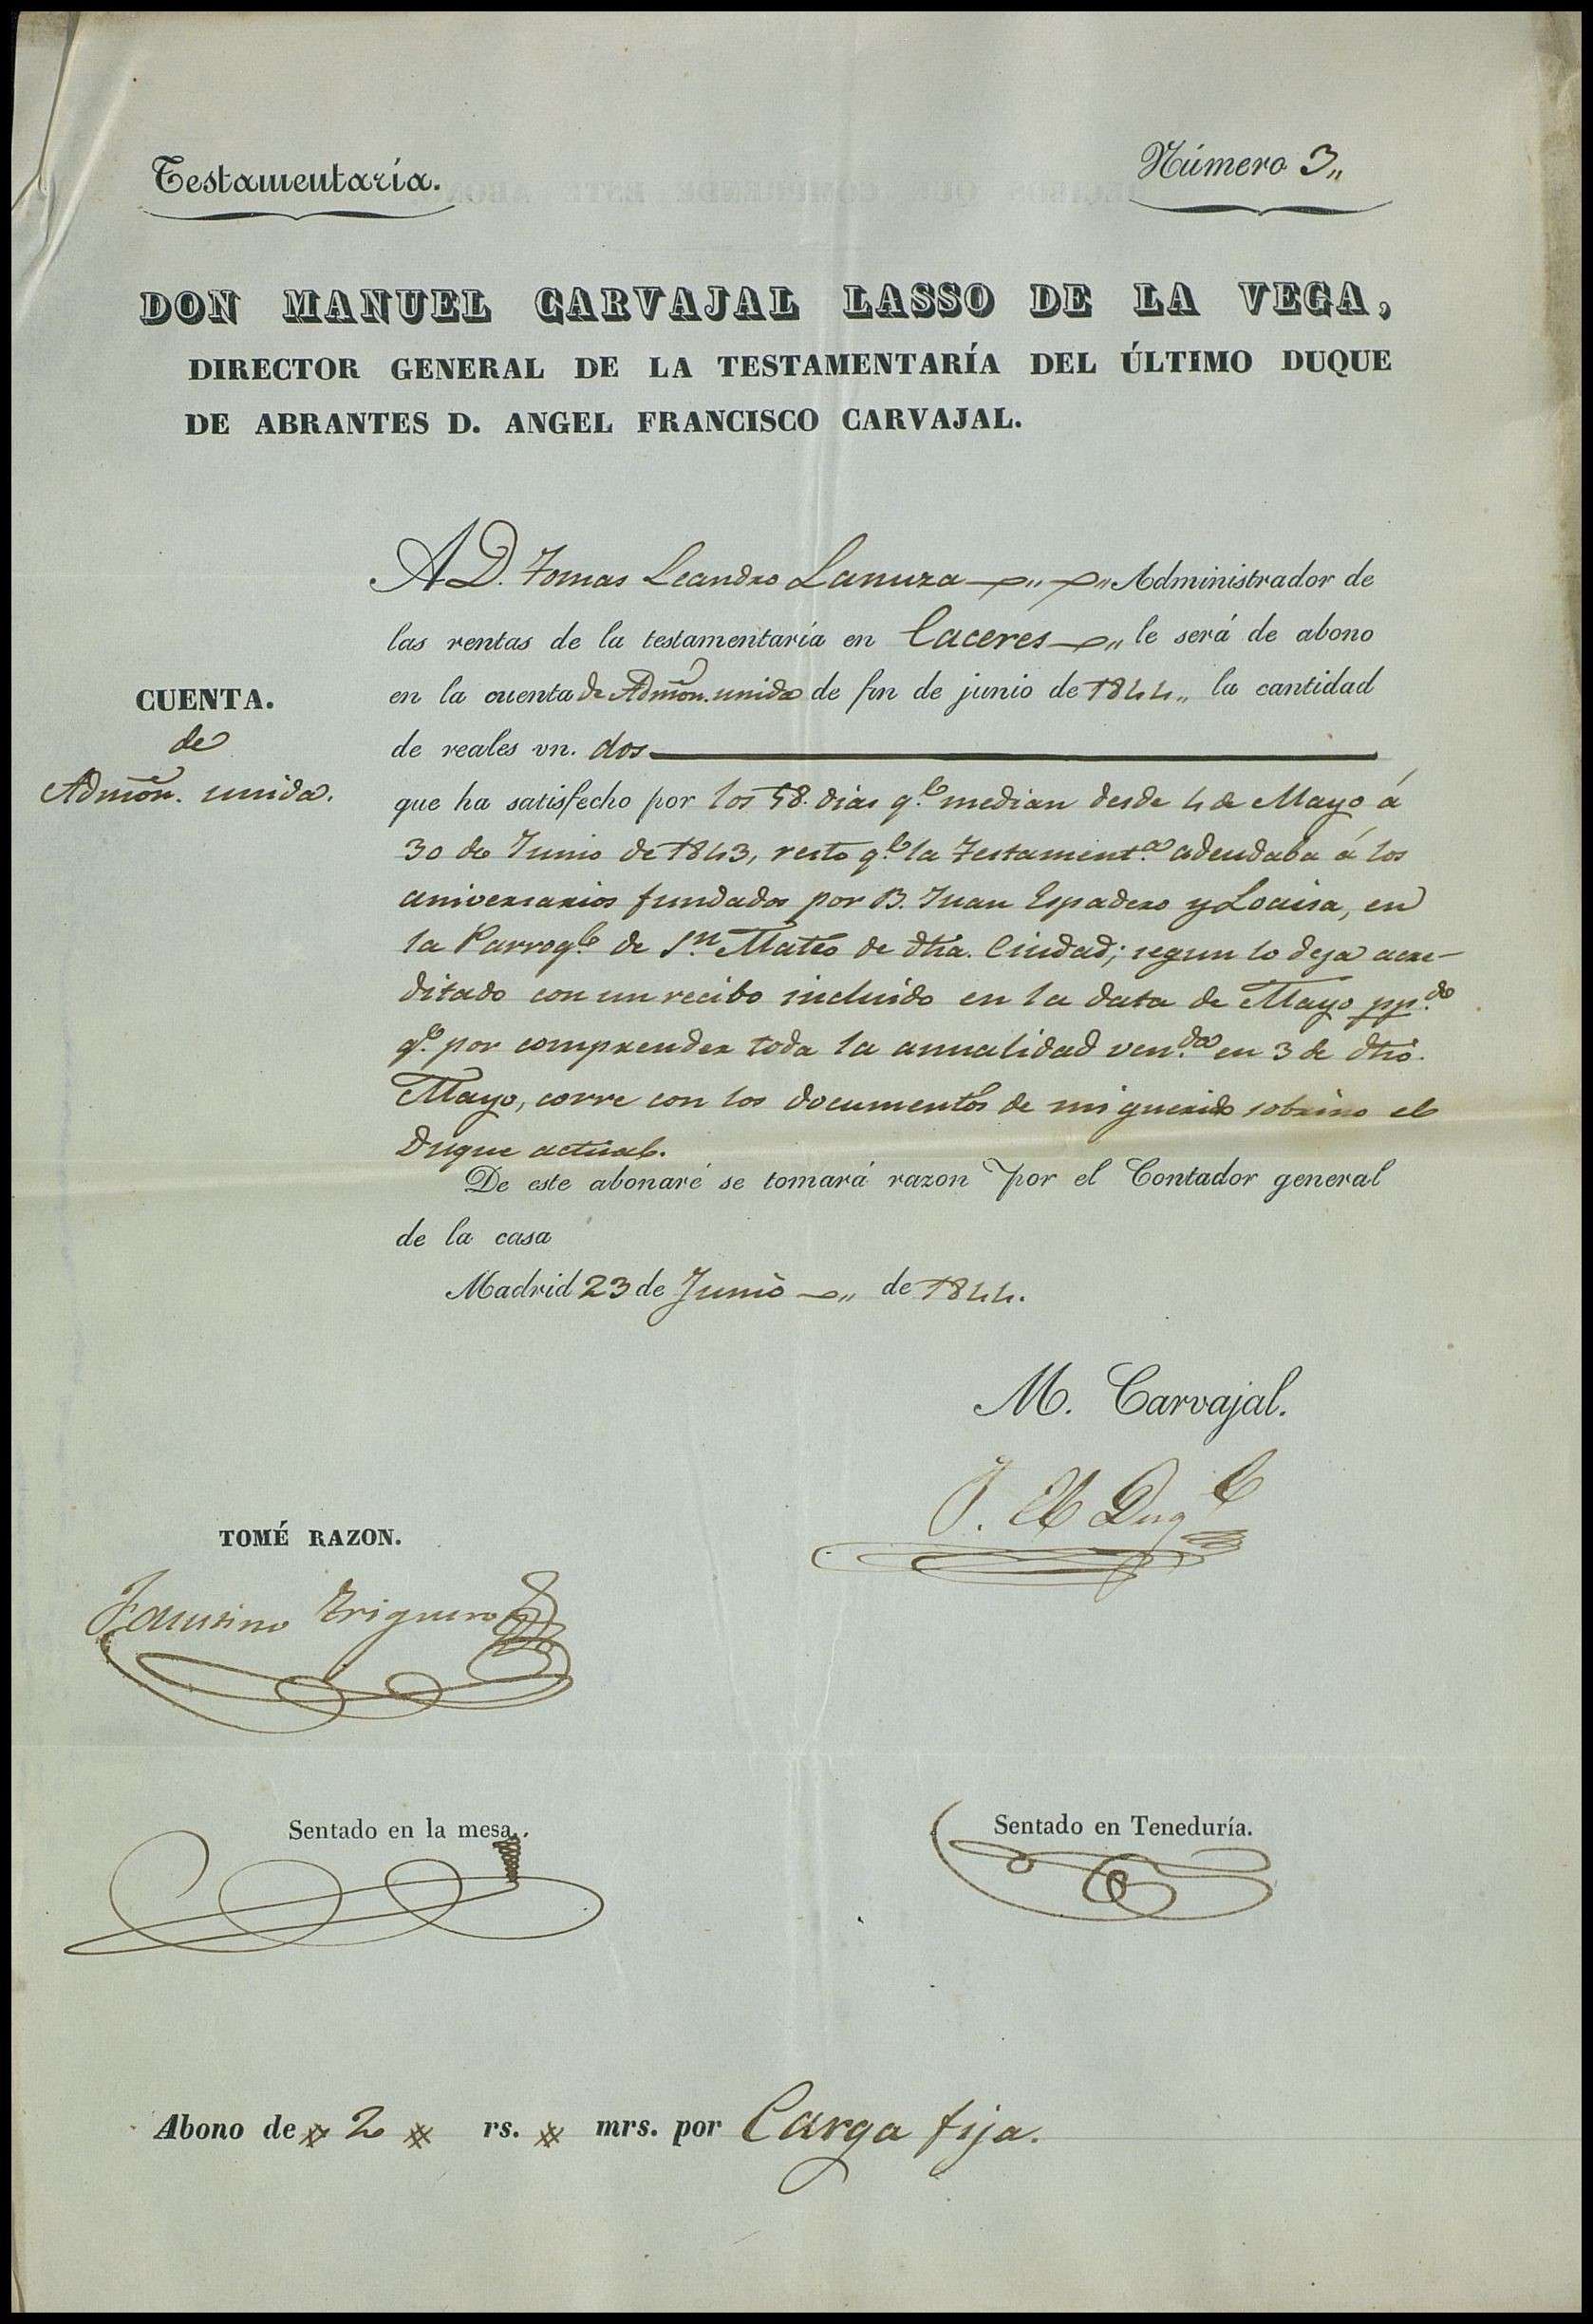 Testamentaría.
Número 3„
DON MANUEL CARVAJAL LASSO DE LA VEGA,
DIRECTOR GENERAL DE LA TESTAMENTARÍA DEL ÚLTIMO DUQUE
DE ABRANTES D. ANGEL FRANCISCO CARVAJAL.
A D. Tomas Leandro Lanuza Administrador de
las rentas de la testamentaría en Caceres le será de abono
CUENTA.
de
Admón. unida.
en la cuenta de Admón. unida de fin de junio de 1844„ la cantidad
de reales vn. dos
que ha satisfecho por los 58. dias q.e median desde 4 de Mayo á
30 de Junio de 1843, resto q.e la Testament.a adeudaba á los
aniversarios fundados por D. Juan Espadero y Loaisa, en
la Parroq.a de S.n Mateo de dha. Ciudad; segun lo deja acre-
ditado con un recibo incluido en la data de Mayo pp.do
q.e por comprender toda la anualidad ven.da en 3 de dho.
Mayo, corre con los documentos de mi querido sobrino el
Duque actual.
De este abonaré se tomará razon por el Contador general
de la casa
Madrid 23 de Junio de 1844.
M. Carvajal.
El Duq.e
TOMÉ RAZON.
Faustino Triguero
Sentado en la mesa.
Sentado en Teneduría.
Abono de 2 rs. mrs. por Carga fija.